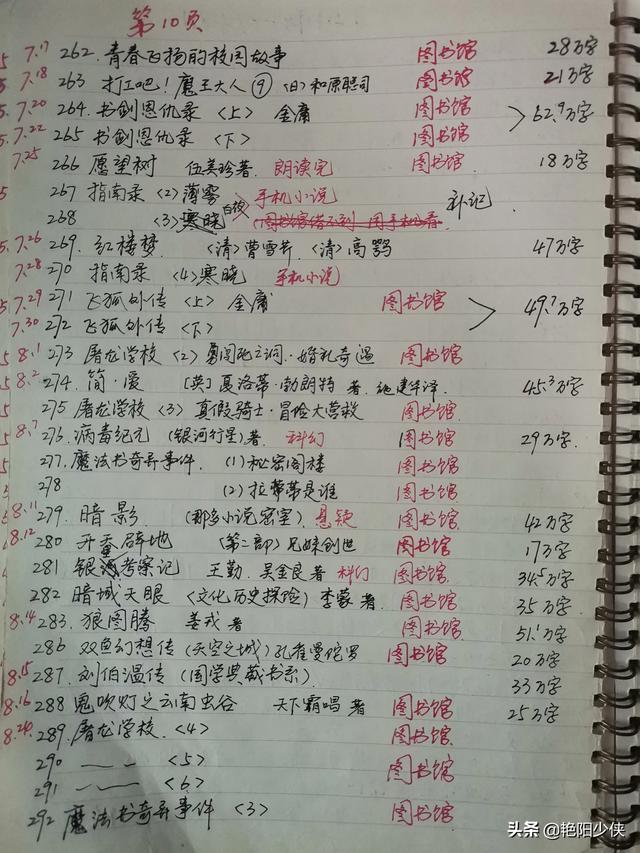 第10页
7.17 262. 青春飞扬的校园故事 图书馆 28万字
7.18 263 打工吧!魔王大人⑨〈日〉和原聪司 图书馆 21万字
7.20 264. 书剑恩仇录〈上〉金庸 图书馆 62.9万字
7.22 265 书剑恩仇录〈下〉 图书馆
7.25 266 愿望树 伍美珍著. 朗读完 图书馆 18万字
267 指南录〈2〉薄雾 手机小说 补记.
268 〈3〉寒晓
7.26 269. 红楼梦 〈清〉曹雪芹.〈清〉高鹗 47万字
7.28 270 指南录〈4〉寒晓 手机小说
7.29 271 飞狐外传〈上〉金庸 图书馆 49.7万字
7.30 272 飞狐外传〈下〉
8.1 273 屠龙学校〈2〉勇闯死亡洞·婚礼奇遇 图书馆
8.2 274. 简·爱 [英]夏洛蒂·勃朗特 著. 45.3万字
275 屠龙学校〈3〉真假骑士·冒险大营救 图书馆
8.7 276. 病毒纪元 (银河行星)著. 科幻 图书馆 29万字
277. 魔法书奇异事件. (1)秘密阁楼 图书馆
278 (2)拉蒂蒂是谁 图书馆
8.11 279. 暗影. (那多小说密室). 悬疑 图书馆 42万字
8.12 280 开天辟地 (第二部)兄妹创世 图书馆 17万字
281 银河考察记 王勤. 吴金良著 科幻 图书馆 34.5万字
282 暗域天眼〈文化历史探险〉李蒙著. 图书馆 35万字
8.4 283. 狼图腾 姜戎著 图书馆 51.1万字
286 双鱼幻想传(天空之城)孔雀曼陀罗 图书馆 20万字
8.15 287. 刘伯温传(国学典藏书系) 33万字
8.16 288 鬼吹灯之云南虫谷 天下霸唱著 图书馆 25万字
8.24 289. 屠龙学校.〈4〉 图书馆
290 〈5〉 图书馆
291 〈6〉
292 魔法书奇异事件〈3〉 图书馆
头条 @艳阳少侠